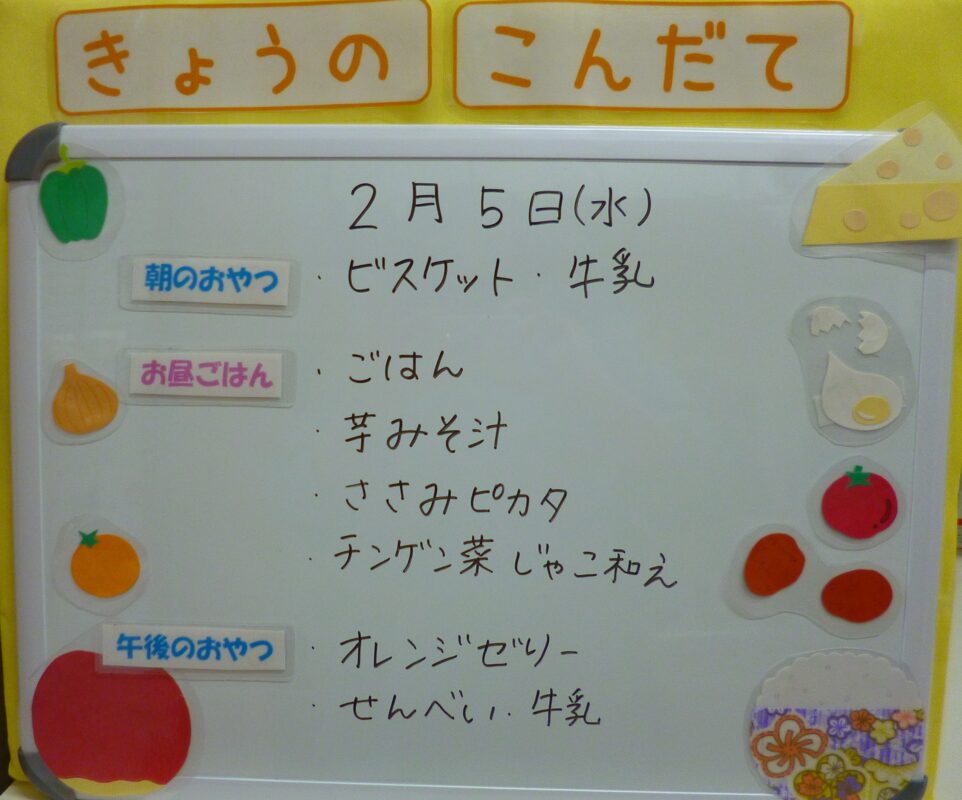 きょうの こんだて
2月5日(水)
朝のおやつ ・ビスケット・牛乳
お昼ごはん ・ごはん
・芋みそ汁
・ささみピカタ
・チンゲン菜じゃこ和え
午後のおやつ ・オレンジゼリー
・せんべい・牛乳